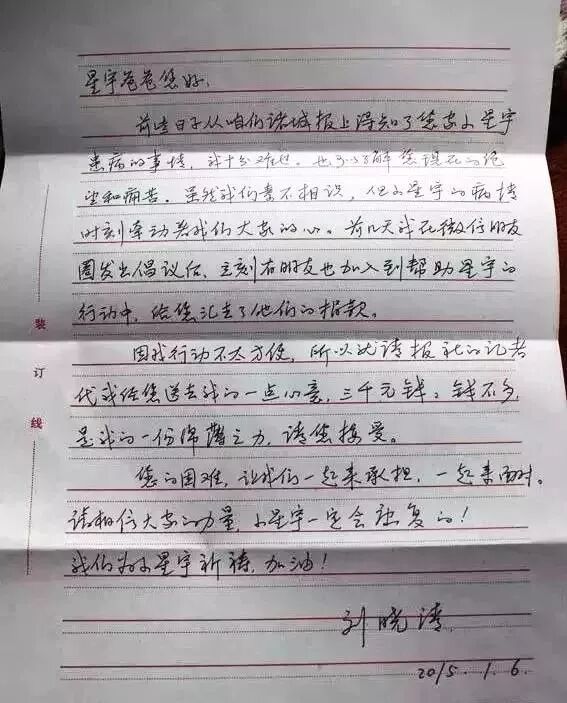 星宇爸爸您好,
前些日子从咱们诸城报上得知了您家小星宇
患病的事情,我十分难过。也可以了解您现在的绝
望和痛苦。虽然我们素不相识,但小星宇的病情
时刻牵动着我们大家的心。前几天我在微信朋友
圈发出倡议后,立刻有朋友也加入到帮助星宇的
行动中,给您汇去了他们的捐款。
因我行动不太方便,所以就请报社的记者
代我给您送去我的一点心意,三千元钱。钱不多,
是我的一份绵薄之力,请您接受。
您的困难,让我们一起来承担,一起来面对。
请相信大家的力量,小星宇一定会康复的!
我们为小星宇祈祷,加油!
刘晓清
2015.1.6.
装
订
线